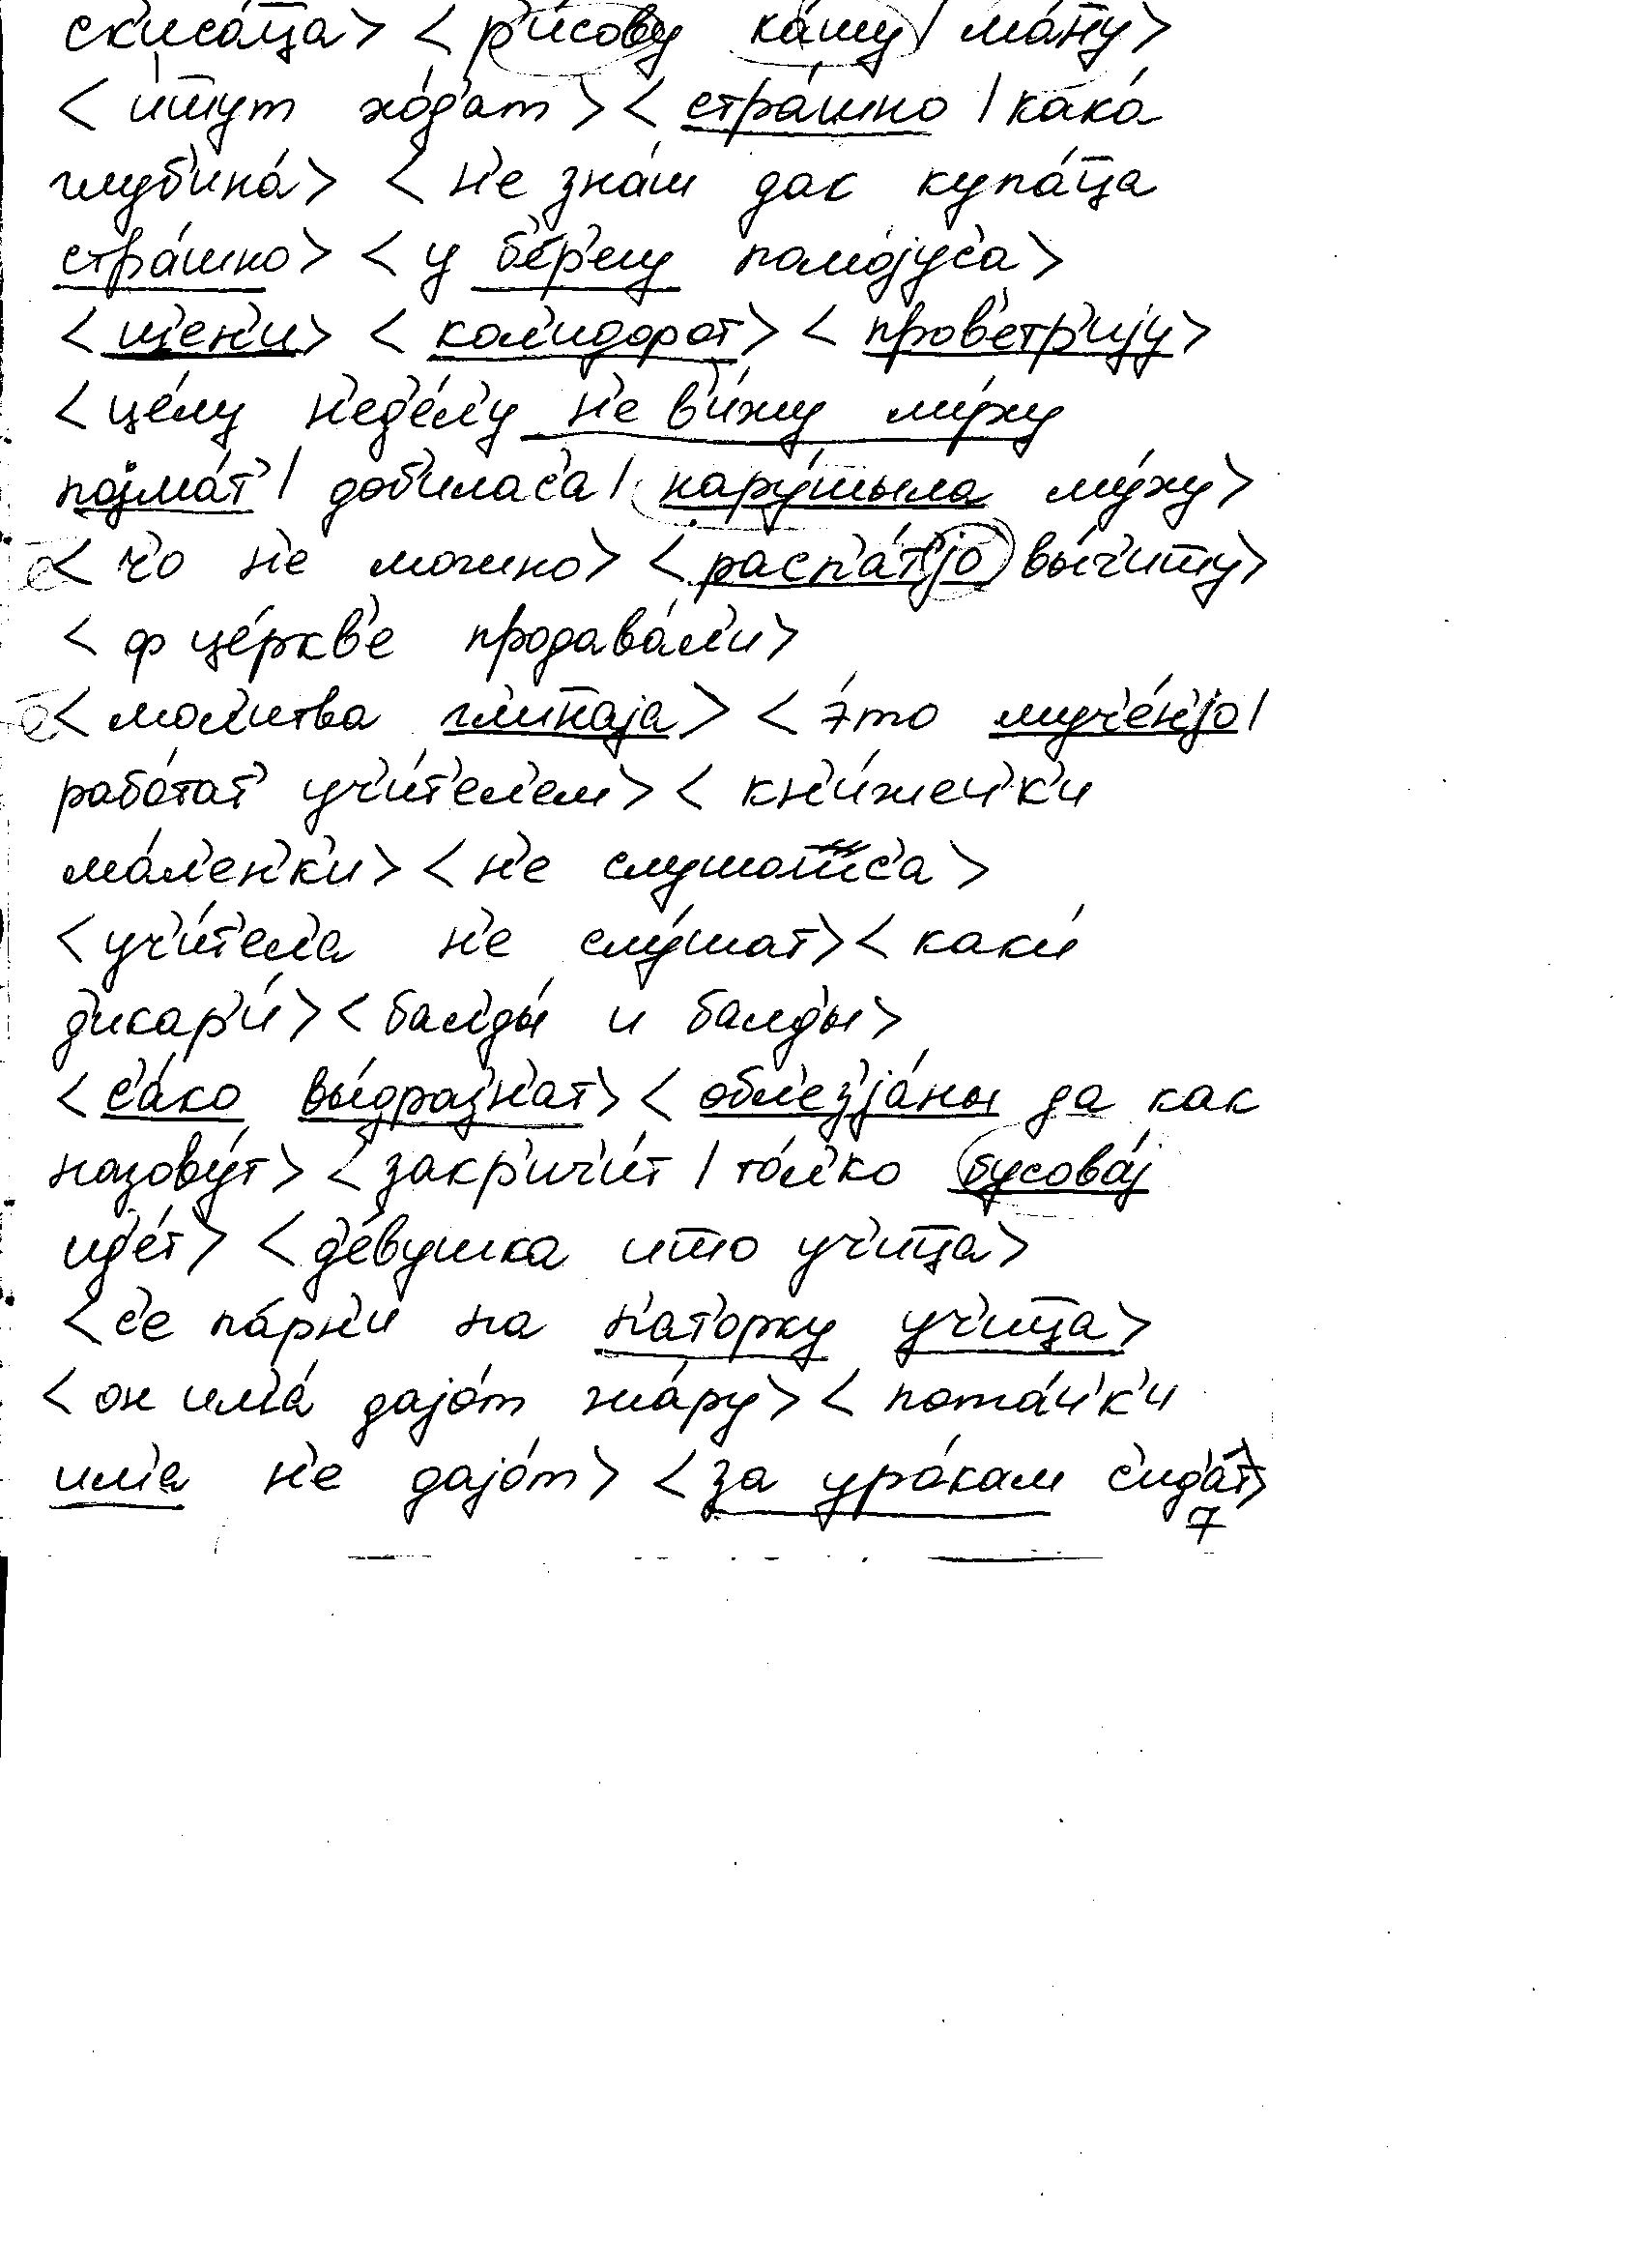 ск'иса́ца> <р'и́сову ка́шу | ма́н̄у>
<и́ш̄ут хо́д'ат> <стра́шно | кака́
глуб'ина́> <н'е зна́ш дак купа́ц̄а
стра́шно> <у б'е́р'егу помо́јус'а>
<щ'ен'и> <кол'идорот> <пров'е́тр'ију>
<це́лу н'ед'е́л'у н'е в'и́жу му́ху
појма́т' | доб'илас'а | нару́шыла му́ху>
<ч'о н'е можно> <расп'а́т'јо вы́ч'ит̄у>
<ф це́ркв'е продава́л'и>
<мол'итва гл'ин̄аја> <э́то муч'е́н'јо |
рабо́тат' уч'и́т'ел'ем> <кн'и́жеч'к'и
ма́л'ен'к'и> <н'е слушотс'а>
<уч'и́т'ел'а н'е слу́шат> <каки́
д'икар'и́> <балды́ и балды>
<с'а́ко вы́дразн'ат> <обл'ез'ја́ны да как
назову́т> <закр'ич'и́т | то́л'ко бусова́ј
ид'е́т> <д'е́вушка што уч'иц̄а>
<с'е па́рн'и на п'ат'орку уч'иц̄а>
<он им'а́ дајо́т жа́ру> <пота́ч'к'и
им'а н'е дајо́т> <за уро́кам с'ид'а́т>
7